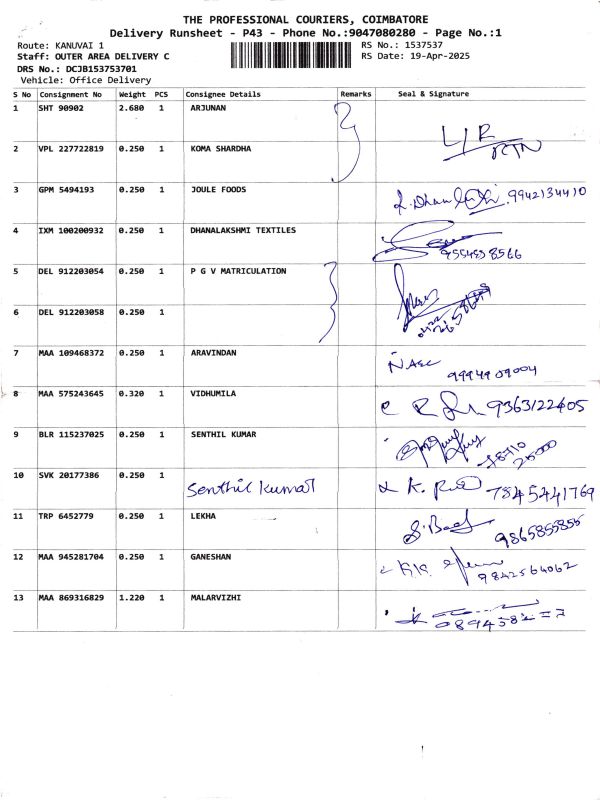 THE PROFESSIONAL COURIERS, COIMBATORE
Delivery Runsheet - P43 - Phone No.:9047080280 - Page No.:1
Route: KANUVAI 1 RS No.: 1537537
Staff: OUTER AREA DELIVERY C RS Date: 19-Apr-2025
DRS No.: DCJB153753701
Vehicle: Office Delivery
S No Consignment No Weight PCS Consignee Details Remarks Seal & Signature
1 SHT 90902 2.680 1 ARJUNAN
L/R
RTN
2 VPL 227722819 0.250 1 KOMA SHARDHA
3 GPM 5494193 0.250 1 JOULE FOODS 9942134410
4 IXM 100200932 0.250 1 DHANALAKSHMI TEXTILES
5 DEL 912203054 0.250 1 P G V MATRICULATION
6 DEL 912203058 0.250 1
7 MAA 109468372 0.250 1 ARAVINDAN
9994909004
8 MAA 575243645 0.320 1 VIDHUMILA 9363122405
9 BLR 115237025 0.250 1 SENTHIL KUMAR
10 SVK 20177386 0.250 1 Senthil Kumar K. 7845441769
11 TRP 6452779 0.250 1 LEKHA 9865855855
12 MAA 945281704 0.250 1 GANESHAN
9842564062
13 MAA 869316829 1.220 1 MALARVIZHI